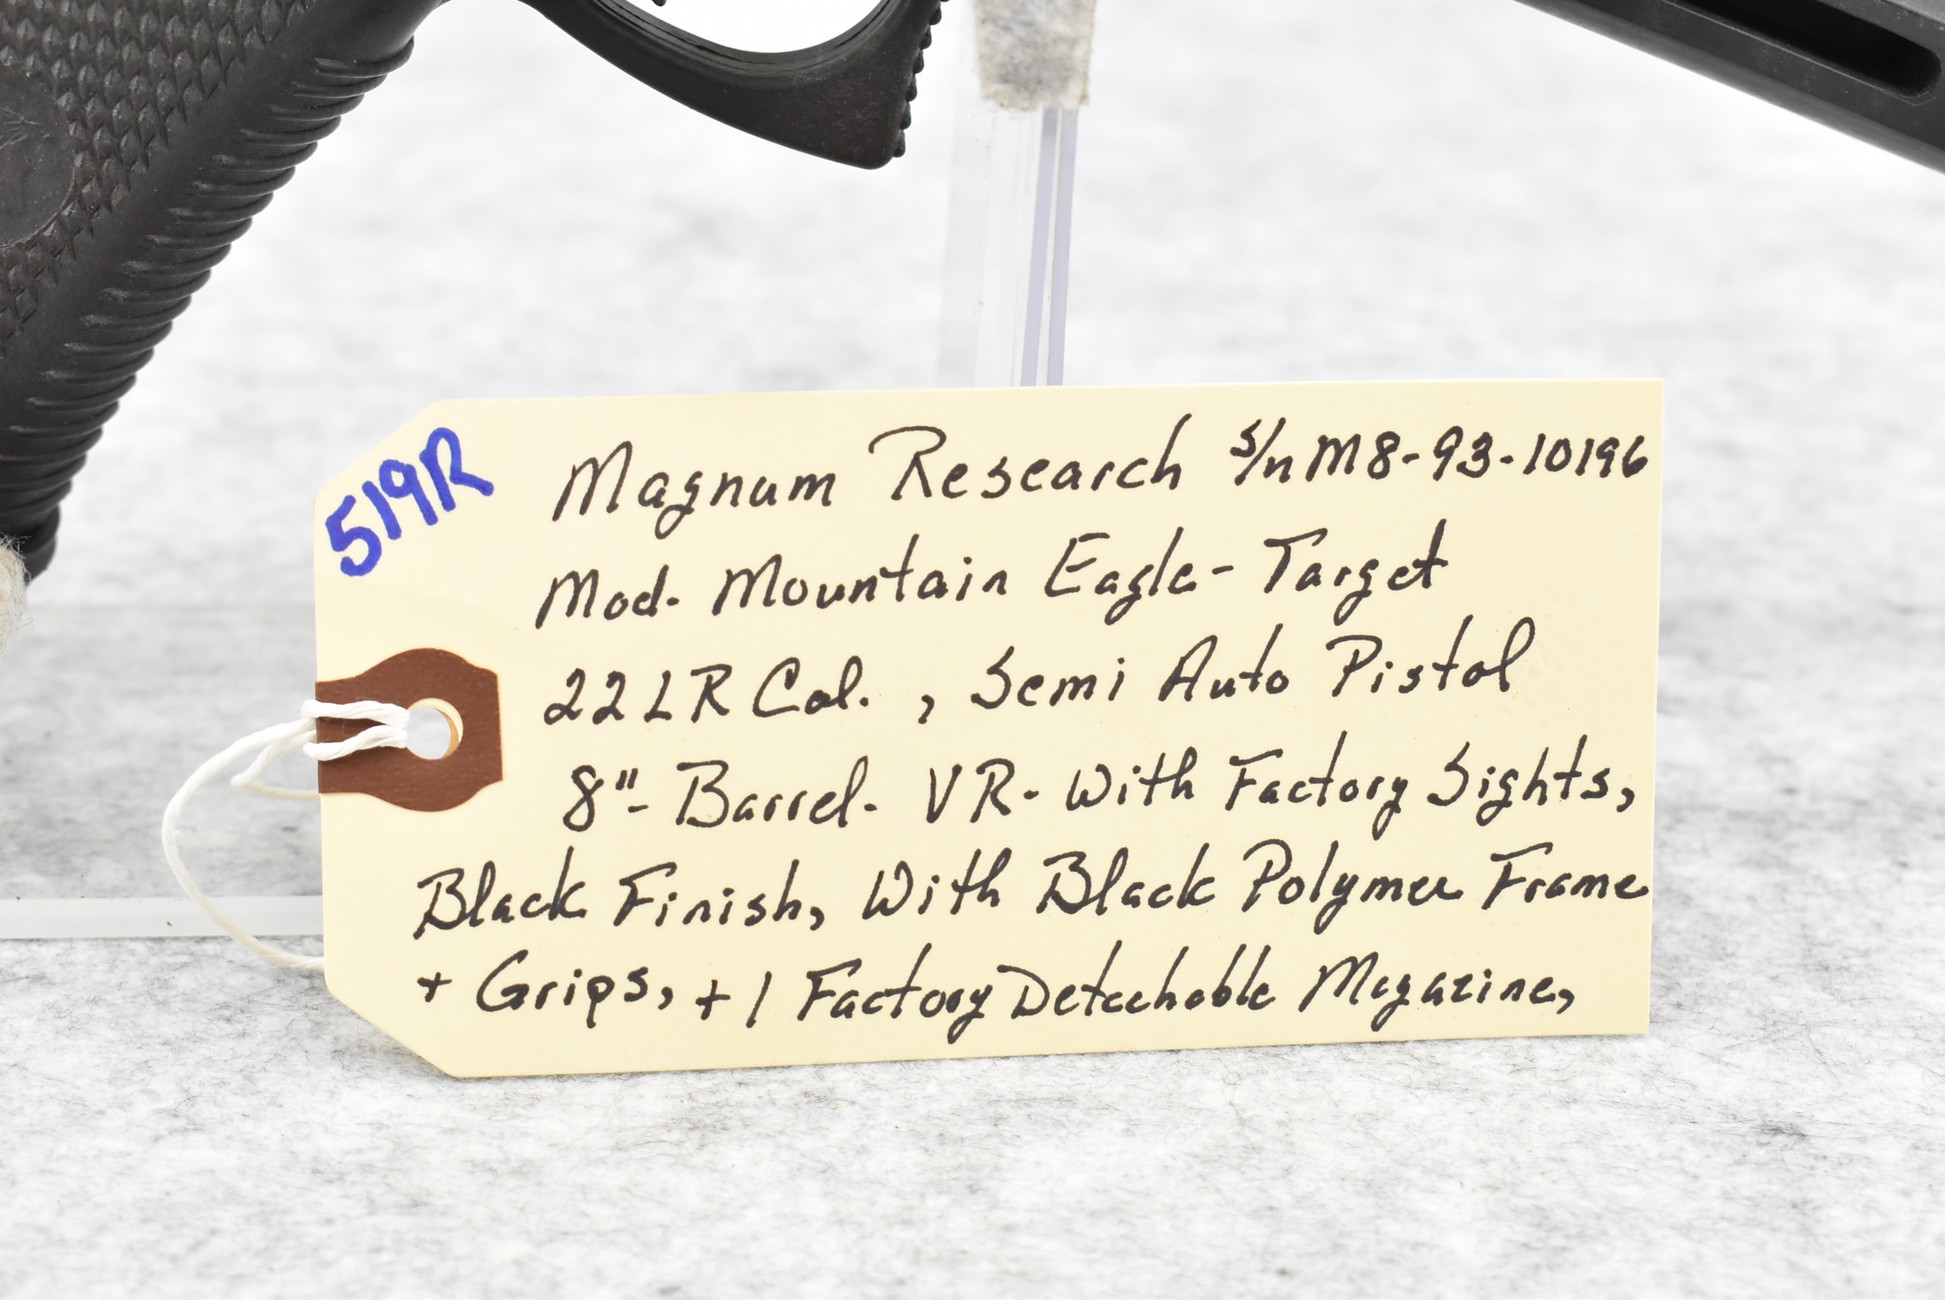 519R
Magnum Research S/n M8-93-10196
Mod. Mountain Eagle - Target
22LR Cal. , Semi Auto Pistol
8" - Barrel - VR - With Factory Sights,
Black Finish, With Black Polymer Frame
+ Grips, + 1 Factory Detachable Magazine,